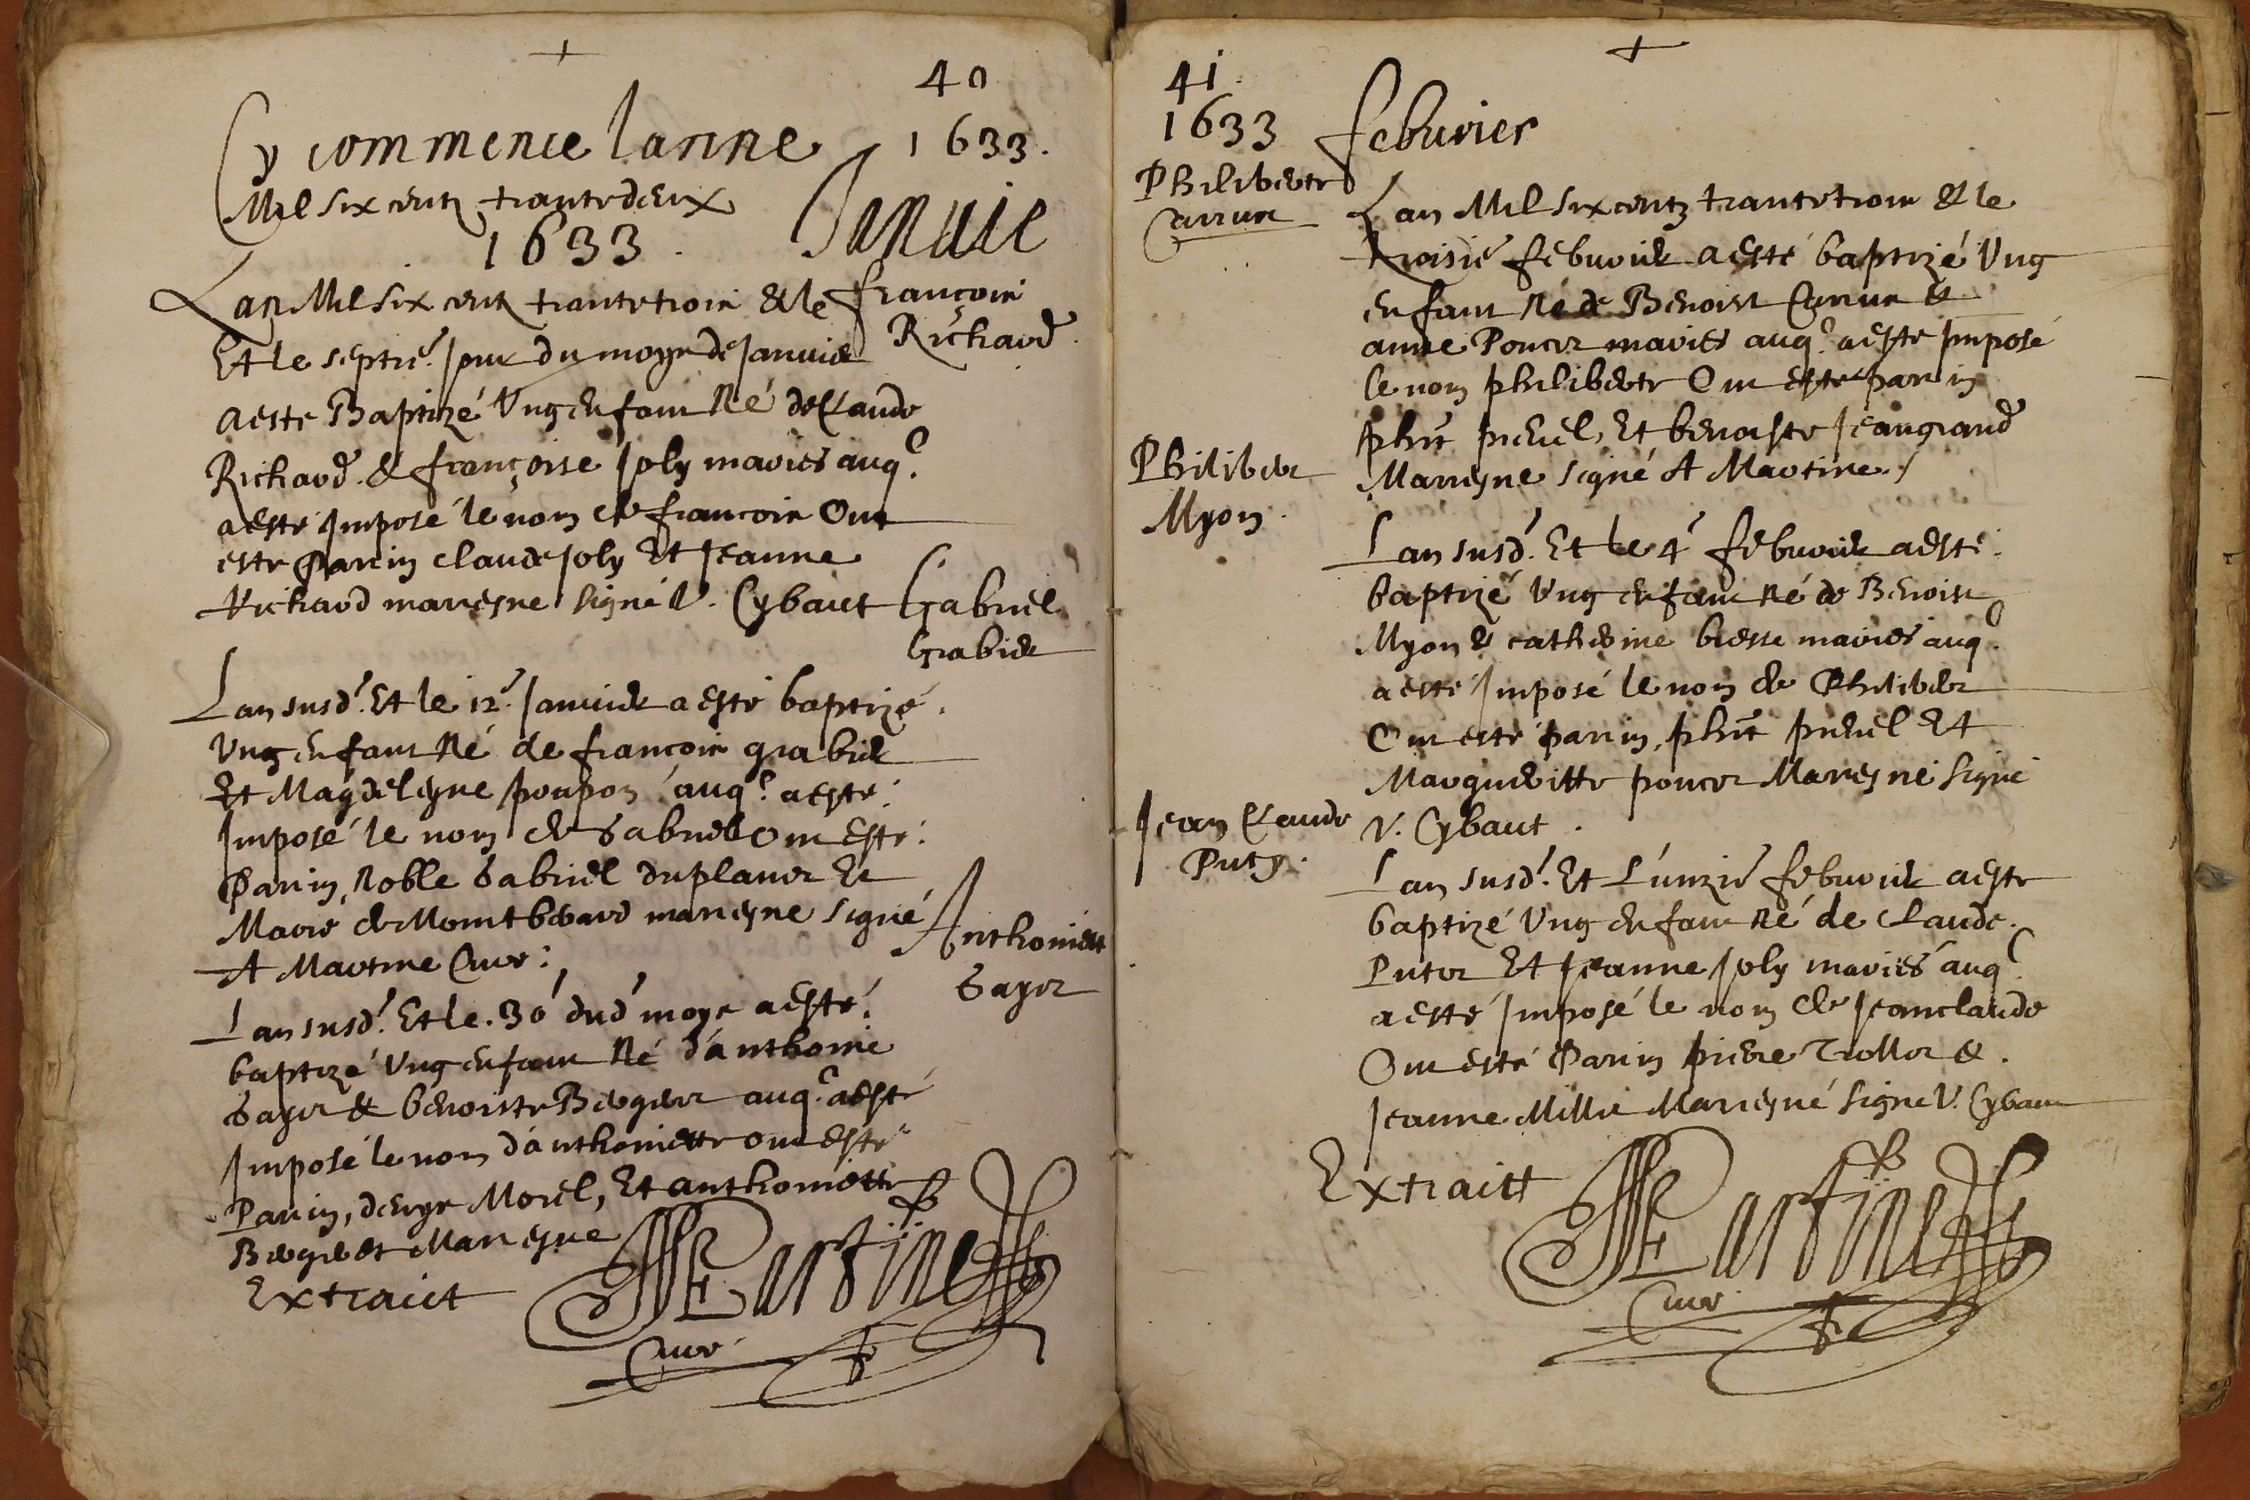 40
Cy commence lanne 1633.
Mil six centz trante deux
1633. Januie
Lan Mil six centz trante trois & le
françois
Richard.
Et le septie. jour du moys de januier
a este Baptizé Ung enfant Né de Claude
Richard & françoise joly mariés auq.
a esté jmposé le nom de francois Ont
este Parin claude joly Et jeanne
Richard mareyne signé V. Cybaut
Gabriel
Grabier
Lan susd. Et le 12e. januier a esté baptizé.
Ung enfant Né de francois grabier
Et Magdeleyne poapon auq. a este.
jmposé le nom de Gabriel Ont esté.
Parin, Noble Gabriel duplaner Et
Marie de Montbeard mareyne signé
A Martine Cure.
Anthoniette
Gayer
Lan susd. Et le. 30 dud moys a esté.
baptizé Ung enfant Né d'anthoine
Gayer & benoiste Berger auq. a esté
jmposé le nom d'anthoniette ont esté
Parin, denys Morel, Et anthoniette
Bergeret Mareyne
Extraict
Martine
Cure
41.
1633 februier
Philiberte
Carrue
Lan Mil six centz trante trois & le
troisie februier a esté baptizé Ung
enfant Né de Benoist Carrue &
anne Poncer mariés auq. a este jmposé
le nom philiberte Ont este parin
phit pieuel, Et benoiste jeangrand
Marreyne signé A Martine.
Philiber
Myon.
Lan susd. Et le 4e februier a esté.
baptizé Ung enfant Né de Benoist
Myon & catherine biesse mariés auq.
a esté jmposé le nom de Philiber
Ont esté parin, phit pieuel Et
Margueritte poncer Mareyne Signé
V. Cybaut.
Jean Claude
Puter.
Lan susd. Et L'unzie februier a este
baptizé Ung enfant Né de Claude.
Puter Et jeanne joly mariés auq.
a esté jmposé le nom de jeanclaude
Ont esté Parin pierre Trollier &.
jeanne Millie Mareyne Signe V. Cybaut
Extraict
Martine
Cure